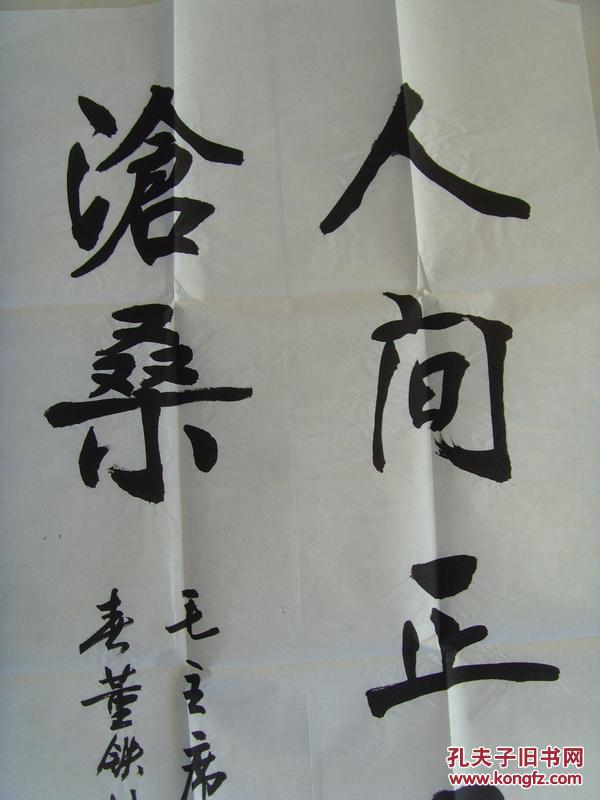 人间正
滄桑
毛主席
春董铁
孔夫子旧书网
www.kongfz.com